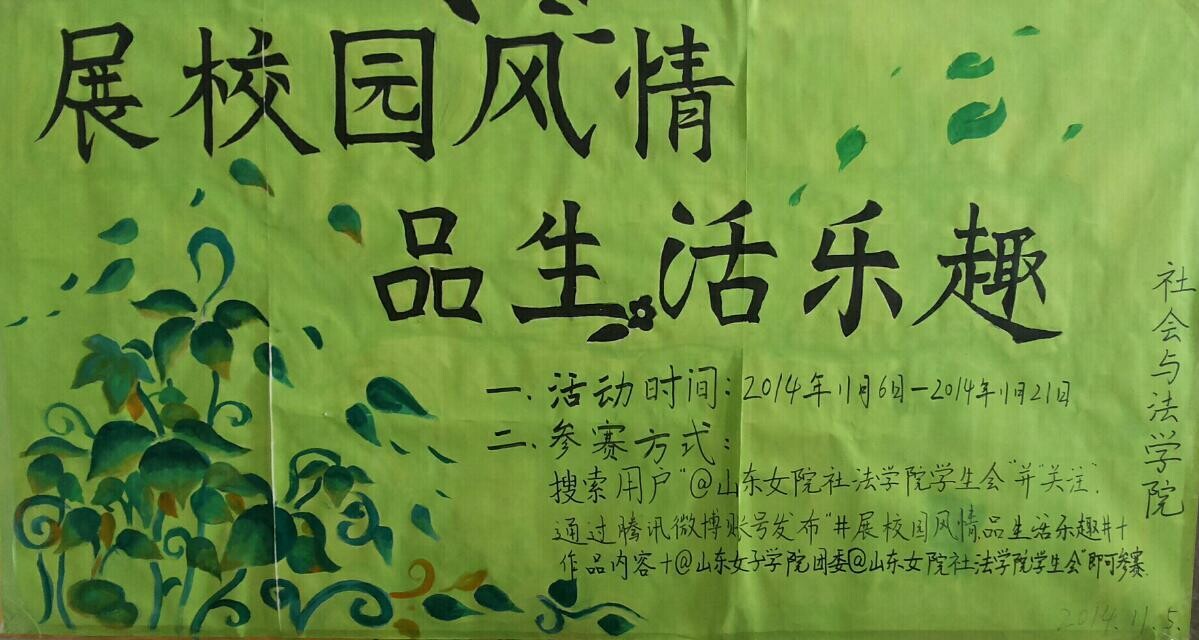 展校园风情
品生活乐趣
一、活动时间：2014年11月6日—2014年11月21日
二、参赛方式：
搜索用户"@山东女院社法学院学生会"并"关注".
通过腾讯微博账号发布"#展校园风情品生活乐趣#+
作品内容+@山东女子学院团委@山东女院社法学院学生会"即可参赛.
社会与法学院
2014.11.5.